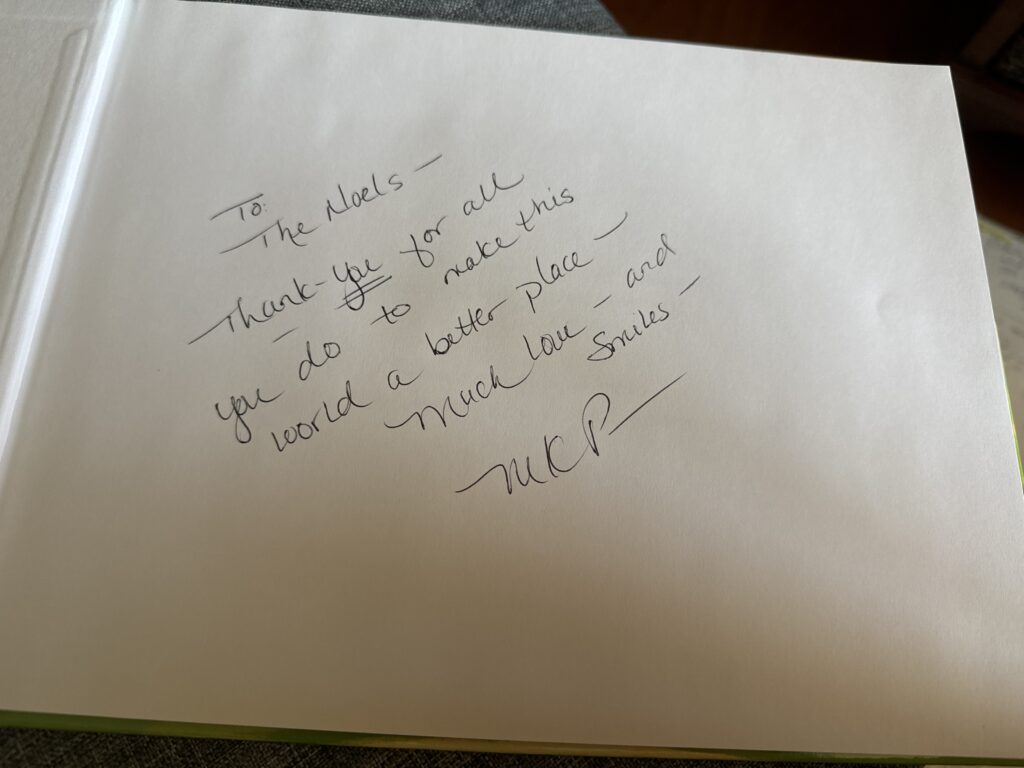 To:
The Noels —
Thank-you for all
you do to make this
world a better place —
Much love — and
smiles —
MKP